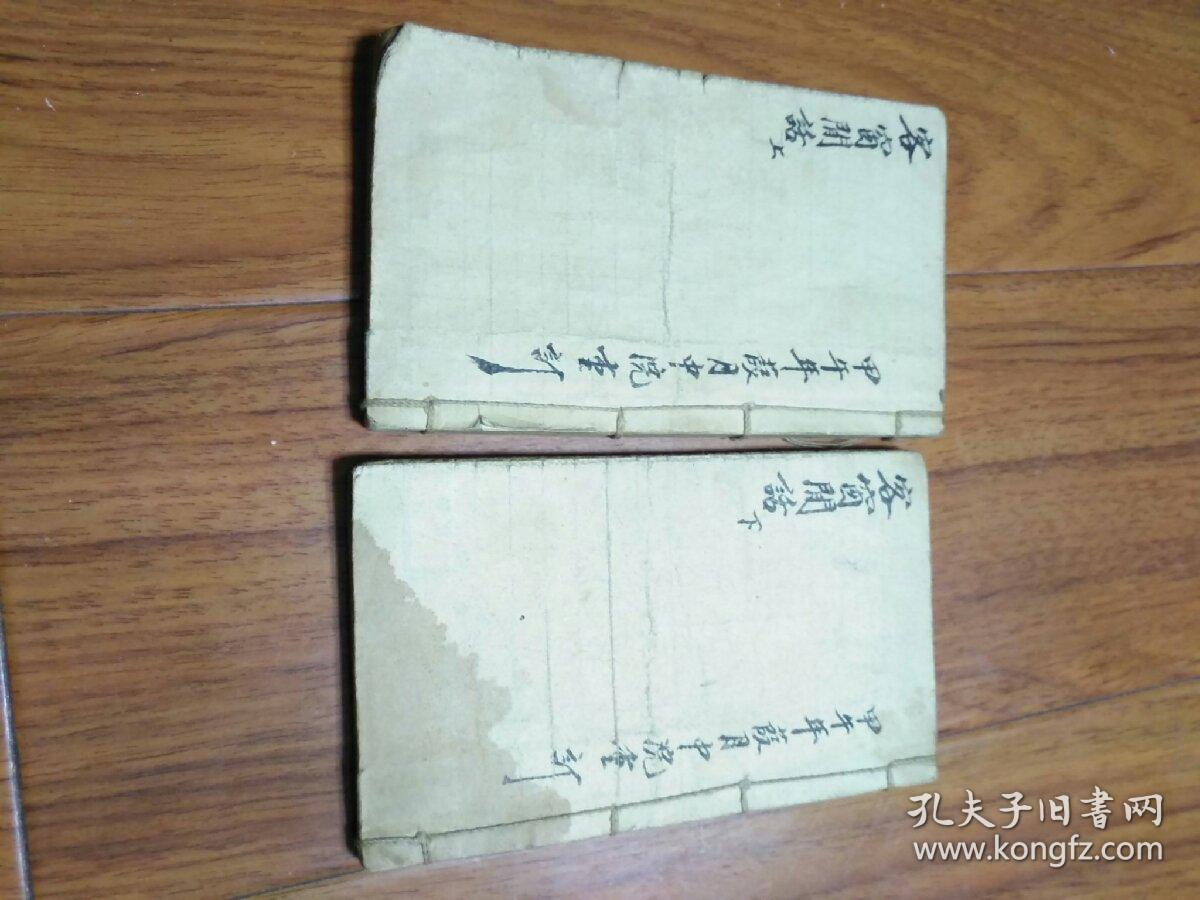 客窗閒話 上
甲午年葭月中浣重訂
客窗閒話 下
甲午年葭月中浣重訂
孔夫子旧书网
www.kongfz.com